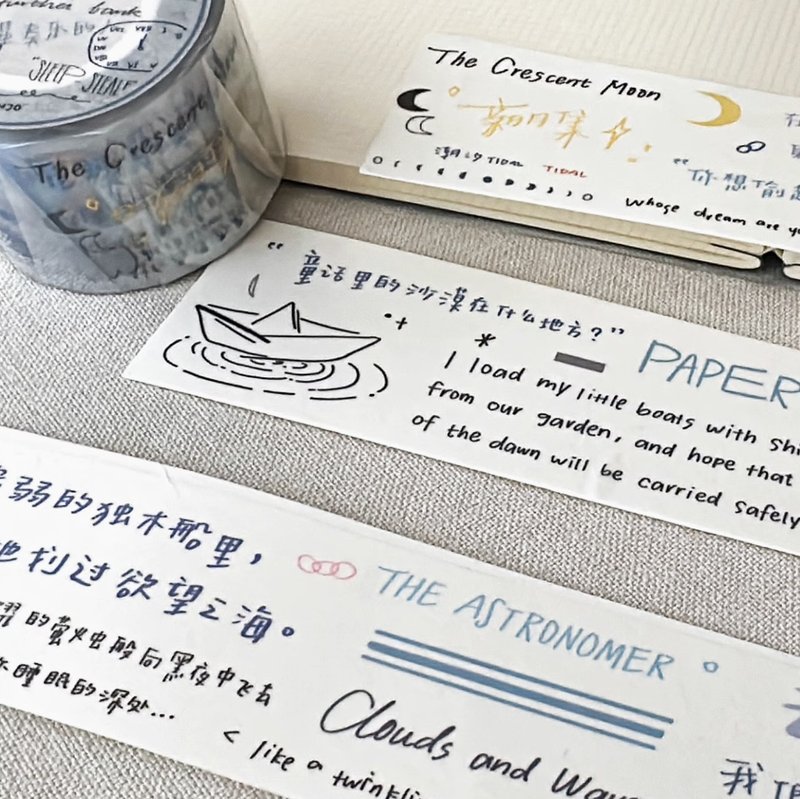 further bank
"SLEEP STEALE
The Crescent Moon
The Crescent Moon
新月集
潮汐 TIDAL TIDAL
"你想偷走
Whose dream are yo
"童话里的沙漠在什么地方?"
PAPER
I load my little boats with shi
from our garden, and hope that
of the dawn will be carried safely
弱的独木船里,
地划过欲望之海。
的萤火虫般向黑夜中飞去
睡眠的深处...
THE ASTRONOMER
Clouds and Wav
< like a twinkli
我